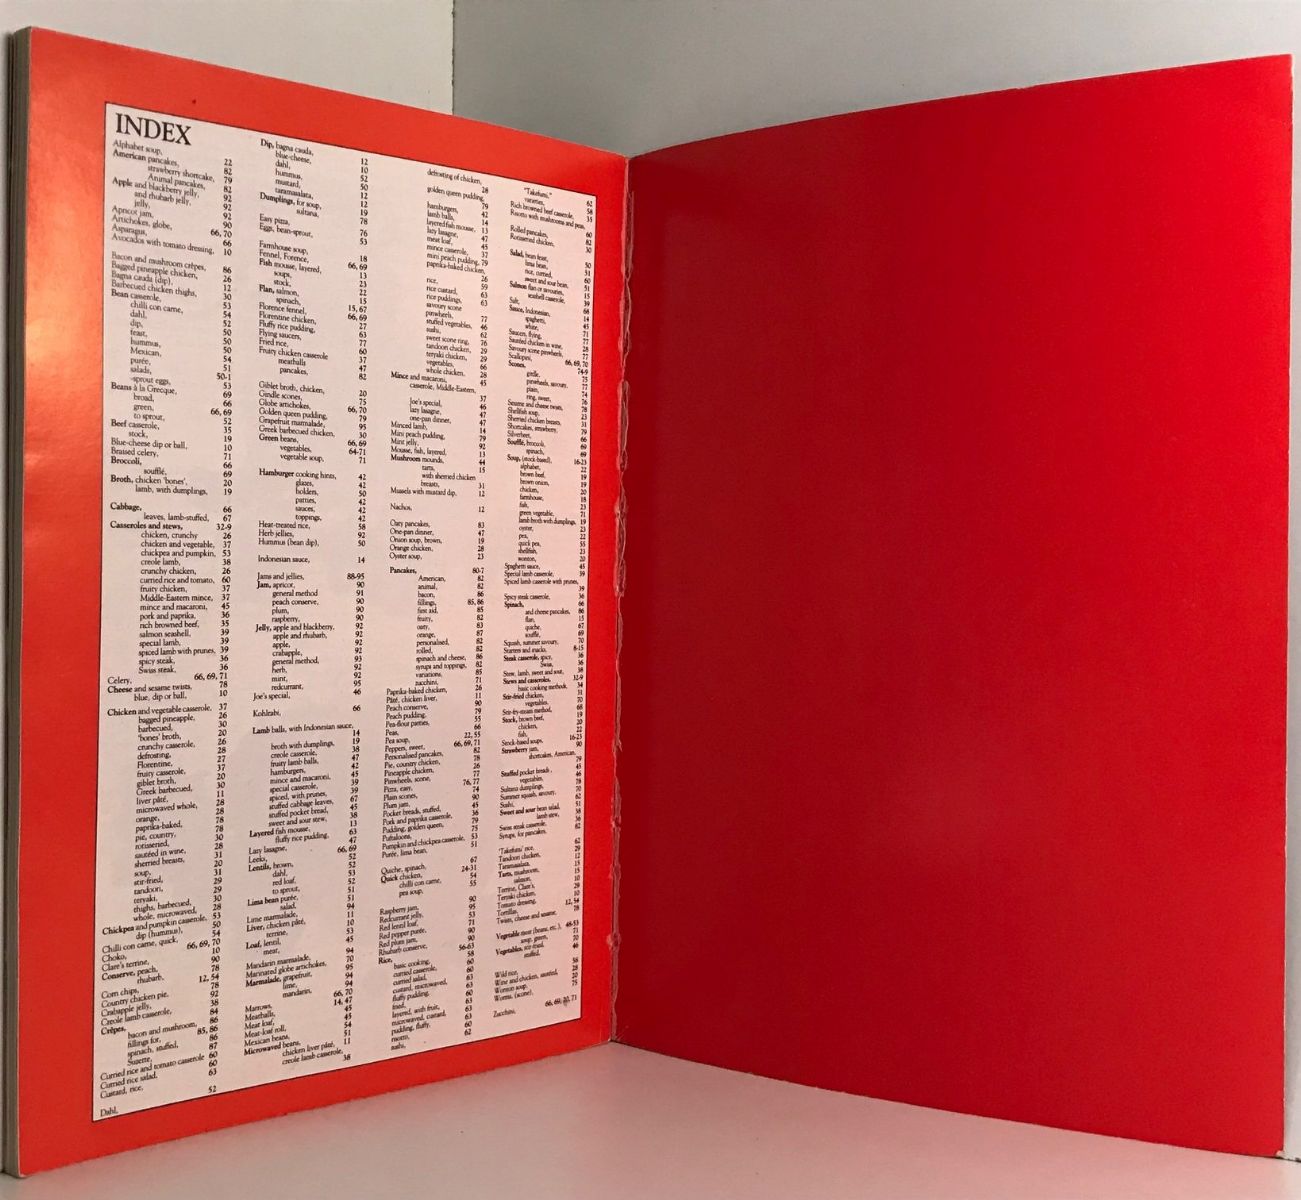 INDEX
Alphabet soup, 22
American pancakes, 82
strawberry shortcake, 79
Animal pancakes, 82
Apple and blackberry jelly, 92
and rhubarb jelly, 92
jelly, 92
Apricot jam, 90
Artichokes, globe, 66, 70
Asparagus, 66
Avocados with tomato dressing, 10
Bacon and mushroom crêpes, 86
Bagged pineapple chicken, 26
Bagna cauda (dip), 12
Barbecued chicken thighs, 30
Bean casserole, 53
chilli con carne, 54
dahl, 52
dip, 50
feast, 50
hummus, 50
Mexican, 54
purée, 51
salads, 50-1
-sprout eggs, 53
Beans à la Grecque, 69
broad, 66
green, 66, 69
to sprout, 52
Beef casserole, 35
stock, 19
Blue-cheese dip or ball, 10
Braised celery, 71
Broccoli, 66
soufflé, 69
Broth, chicken 'bones', 20
lamb, with dumplings, 19
Cabbage, 66
leaves, lamb-stuffed, 67
Casseroles and stews, 32-9
chicken, crunchy 26
chicken and vegetable, 37
chickpea and pumpkin, 53
creole lamb, 38
crunchy chicken, 26
curried rice and tomato, 60
fruity chicken, 37
Middle-Eastern mince, 37
mince and macaroni, 45
pork and paprika, 36
rich browned beef, 35
salmon seashell, 39
special lamb, 39
spiced lamb with prunes, 39
spicy steak, 36
Swiss steak, 36
Celery, 66, 69, 71
Cheese and sesame twists, 78
blue, dip or ball, 10
Chicken and vegetable casserole, 37
bagged pineapple, 26
barbecued, 30
'bones' broth, 20
crunchy casserole, 26
defrosting, 28
Florentine, 27
fruity casserole, 37
giblet broth, 20
Greek barbecued, 30
liver pâté, 11
microwaved whole, 28
orange, 28
paprika-baked,
pie, country, 78
rotisseried, 30
sautéed in wine, 28
sherried breasts, 31
soup, 20
stir-fried, 31
tandoori, 29
teriyaki, 29
thighs, barbecued, 30
whole, microwaved, 28
Chickpea and pumpkin casserole, 53
dip (hummus), 50
Chilli con carne, quick, 54
Choko, 66, 69, 70
Clare's terrine, 10
Conserve, peach, 90
rhubarb,
Corn chips, 12, 54
Country chicken pie, 78
Crabapple jelly, 92
Creole lamb casserole, 38
Crêpes, 84
bacon and mushroom, 86
fillings for, 85, 86
spinach, stuffed, 86
Suzette, 87
Curried rice and tomato casserole 60
Curried rice salad, 60
Custard, rice, 63
Dahl, 52
Dip, bagna cauda, 12
blue-cheese, 10
dahl, 52
hummus, 50
mustard, 12
taramasalata, 12
Dumplings, for soup, 19
sultana, 78
Easy pizza, 76
Eggs, bean-sprout, 53
Farmhouse soup, 18
Fennel, Forence, 66, 69
Fish mousse, layered, 13
soups, 23
stock, 22
Flan, salmon, 15
spinach, 15, 67
Florence fennel, 66, 69
Florentine chicken, 27
Fluffy rice pudding, 63
Flying saucers, 77
Fried rice, 60
Fruity chicken casserole 37
meatballs 47
pancakes, 82
Giblet broth, chicken, 20
Girdle scones, 75
Globe artichokes, 66, 70
Golden queen pudding, 79
Grapefruit marmalade, 95
Greek barbecued chicken, 30
Green beans, 66, 69
vegetables, 64-71
vegetable soup, 71
Hamburger cooking hints, 42
glazes, 42
holders, 50
patties, 42
sauces, 42
toppings, 42
Heat-treated rice, 58
Herb jellies, 92
Hummus (bean dip), 50
Indonesian sauce, 14
Jams and jellies, 88-95
Jam, apricot, 90
general method 91
peach conserve, 90
plum, 90
raspberry, 90
Jelly, apple and blackberry, 92
apple and rhubarb, 92
apple, 92
crabapple, 92
general method, 93
herb, 92
mint, 92
redcurrant, 95
Joe's special, 46
Kohlrabi, 66
Lamb balls, with Indonesian sauce, 14
broth with dumplings, 19
creole casserole, 38
fruity lamb balls, 47
hamburgers, 42
mince and macaroni, 45
special casserole, 39
spiced, with prunes, 39
stuffed cabbage leaves, 67
stuffed pocket bread, 45
sweet and sour stew, 38
Layered fish mousse, 13
fluffy rice pudding, 63
Lazy lasagne, 47
Leeks, 66, 69
Lentils, brown, 52
dahl, 52
red loaf, 53
to sprout, 52
Lima bean purée, 51
salad, 51
Lime marmalade, 94
Liver, chicken pâté, 11
terrine, 10
Loaf, lentil, 53
meat, 45
Mandarin marmalade, 94
Marinated globe artichokes, 70
Marmalade, grapefruit, 95
lime, 94
mandarin, 94
Marrows, 66, 70
Meatballs, 14, 47
Meat loaf, 45
Meat-loaf roll, 45
Mexican beans, 54
Microwaved beans, 51
chicken liver pâté, 11
creole lamb casserole, 38
defrosting of chicken, 28
golden queen pudding, 79
hamburgers, 42
lamb balls, 14
layered fish mousse, 13
lazy lasagne, 47
meat loaf, 45
mince casserole, 37
mini peach pudding, 79
paprika-baked chicken, 26
rice, 59
rice custard, 63
rice puddings, 63
savoury scone pinwheels, 77
stuffed vegetables, 46
sushi, 62
sweet scone ring, 76
tandoori chicken, 29
teriyaki chicken, 29
vegetables, 66
whole chicken, 28
Mince and macaroni, 45
casserole, Middle-Eastern, 37
Joe's special, 46
lazy lasagne, 47
one-pan dinner, 47
Minced lamb, 14
Mini peach pudding, 79
Mint jelly, 92
Mousse, fish, layered, 13
Mushroom mounds, 44
tarts, 15
with sherried chicken breasts, 31
Mussels with mustard dip, 12
Nachos, 12
Oaty pancakes, 83
One-pan dinner, 47
Onion soup, brown, 19
Orange chicken, 28
Oyster soup, 23
Pancakes, 80-7
American, 82
animal, 82
bacon, 86
fillings, 85, 86
first aid, 85
fruity, 82
oaty, 83
orange, 87
personalised, 82
rolled, 82
spinach and cheese, 86
syrups and toppings, 82
variations, 85
zucchini, 71
Paprika-baked chicken, 26
Pâté, chicken liver, 11
Peach conserve, 90
Peach pudding, 79
Pea-flour patties, 55
Peas, 66
Pea soup, 22, 55
Peppers, sweet, 66, 69, 71
Personalised pancakes, 82
Pie, country chicken, 78
Pineapple chicken, 26
Pinwheels, scone, 77
Pizza, easy, 76, 77
Plain scones, 74
Plum jam, 90
Pocket breads, stuffed, 45
Pork and paprika casserole, 36
Pudding, golden queen, 79
Puftaloons, 75
Pumpkin and chickpea casserole, 53
Purée, lima bean, 51
Quiche, spinach, 67
Quick chicken, 24-31
chilli con carne, 54
pea soup, 55
Raspberry jam, 90
Redcurrant jelly, 95
Red lentil loaf, 53
Red pepper purée, 71
Red plum jam, 90
Rhubarb conserve, 90
Rice, 56-63
basic cooking, 58
curried casserole, 60
curried salad, 60
custard, microwaved, 63
fluffy pudding, 63
fried, 60
layered, with fruit, 63
microwaved, custard, 63
pudding, fluffy, 63
risotto, 60
sushi, 62
"Takefumi," 62
varieties, 58
Rich browned beef casserole, 35
Risotto with mushrooms and peas, 60
Rolled pancakes, 82
Rotisseried chicken, 30
Salad, bean feast, 50
lima bean, 51
rice, curried, 60
sweet and sour bean, 51
Salmon flan or savouries, 15
seashell casserole, 39
Salt, 66
Sauce, Indonesian, 14
spaghetti, 45
white, 71
Saucers, flying, 77
Sautéed chicken in wine, 28
Savoury scone pinwheels, 77
Scallopini, 66, 69, 70
Scones, 74-9
girdle, 75
pinwheels, savoury, 77
plain, 74
ring, sweet, 76
Sesame and cheese twists, 78
Shellfish soup, 23
Sherried chicken breasts, 31
Shortcakes, strawberry, 79
Silverbeet, 66
Soufflé, broccoli, 69
spinach, 69
Soup, (stock-based), 16-23
alphabet, 22
brown beef, 19
brown onion, 19
chicken, 20
farmhouse, 18
fish, 23
green vegetable, 71
lamb broth with dumplings, 19
oyster, 23
pea, 22
quick pea, 55
shellfish, 23
wonton, 20
Spaghetti sauce, 45
Special lamb casserole, 39
Spiced lamb casserole with prunes, 39
Spicy steak casserole, 36
Spinach, 66
and cheese pancakes, 86
flan, 15
quiche, 67
soufflé, 69
Squash, summer savoury, 70
Starters and snacks, 8-15
Steak casserole, spicy, 36
Swiss, 36
Stew, lamb, sweet and sour, 38
Stews and casseroles, 32-9
basic cooking methods, 34
Stir-fried chicken, 31
vegetables, 70
Stir-fry-steam method, 68
Stock, brown beef, 19
chicken, 20
fish, 22
Stock-based soups, 16-23
Strawberry jam, 90
shortcakes, American, 79
Stuffed pocket breads, 45
vegetables, 46
Sultana dumplings, 78
Summer squash, savoury, 70
Sushi, 62
Sweet and sour bean salad, 51
lamb stew, 38
Swiss steak casserole, 36
Syrups, for pancakes, 82
'Takefumi' rice, 62
Tandoori chicken, 29
Taramasalata, 12
Tarts, mushroom, 15
salmon, 15
Terrine, Clare's, 10
Teriyaki chicken, 29
Tomato dressing, 10
Tortillas, 12, 54
Twists, cheese and sesame, 78
Vegetable meat (beans, etc.), 48-53
soup, green, 71
Vegetables, stir-fried, 70
stuffed, 46
Wild rice, 58
Wine and chicken, sautéed, 28
Wonton soup, 20
Worms, (scone), 75
Zucchini, 66, 69, 70, 71